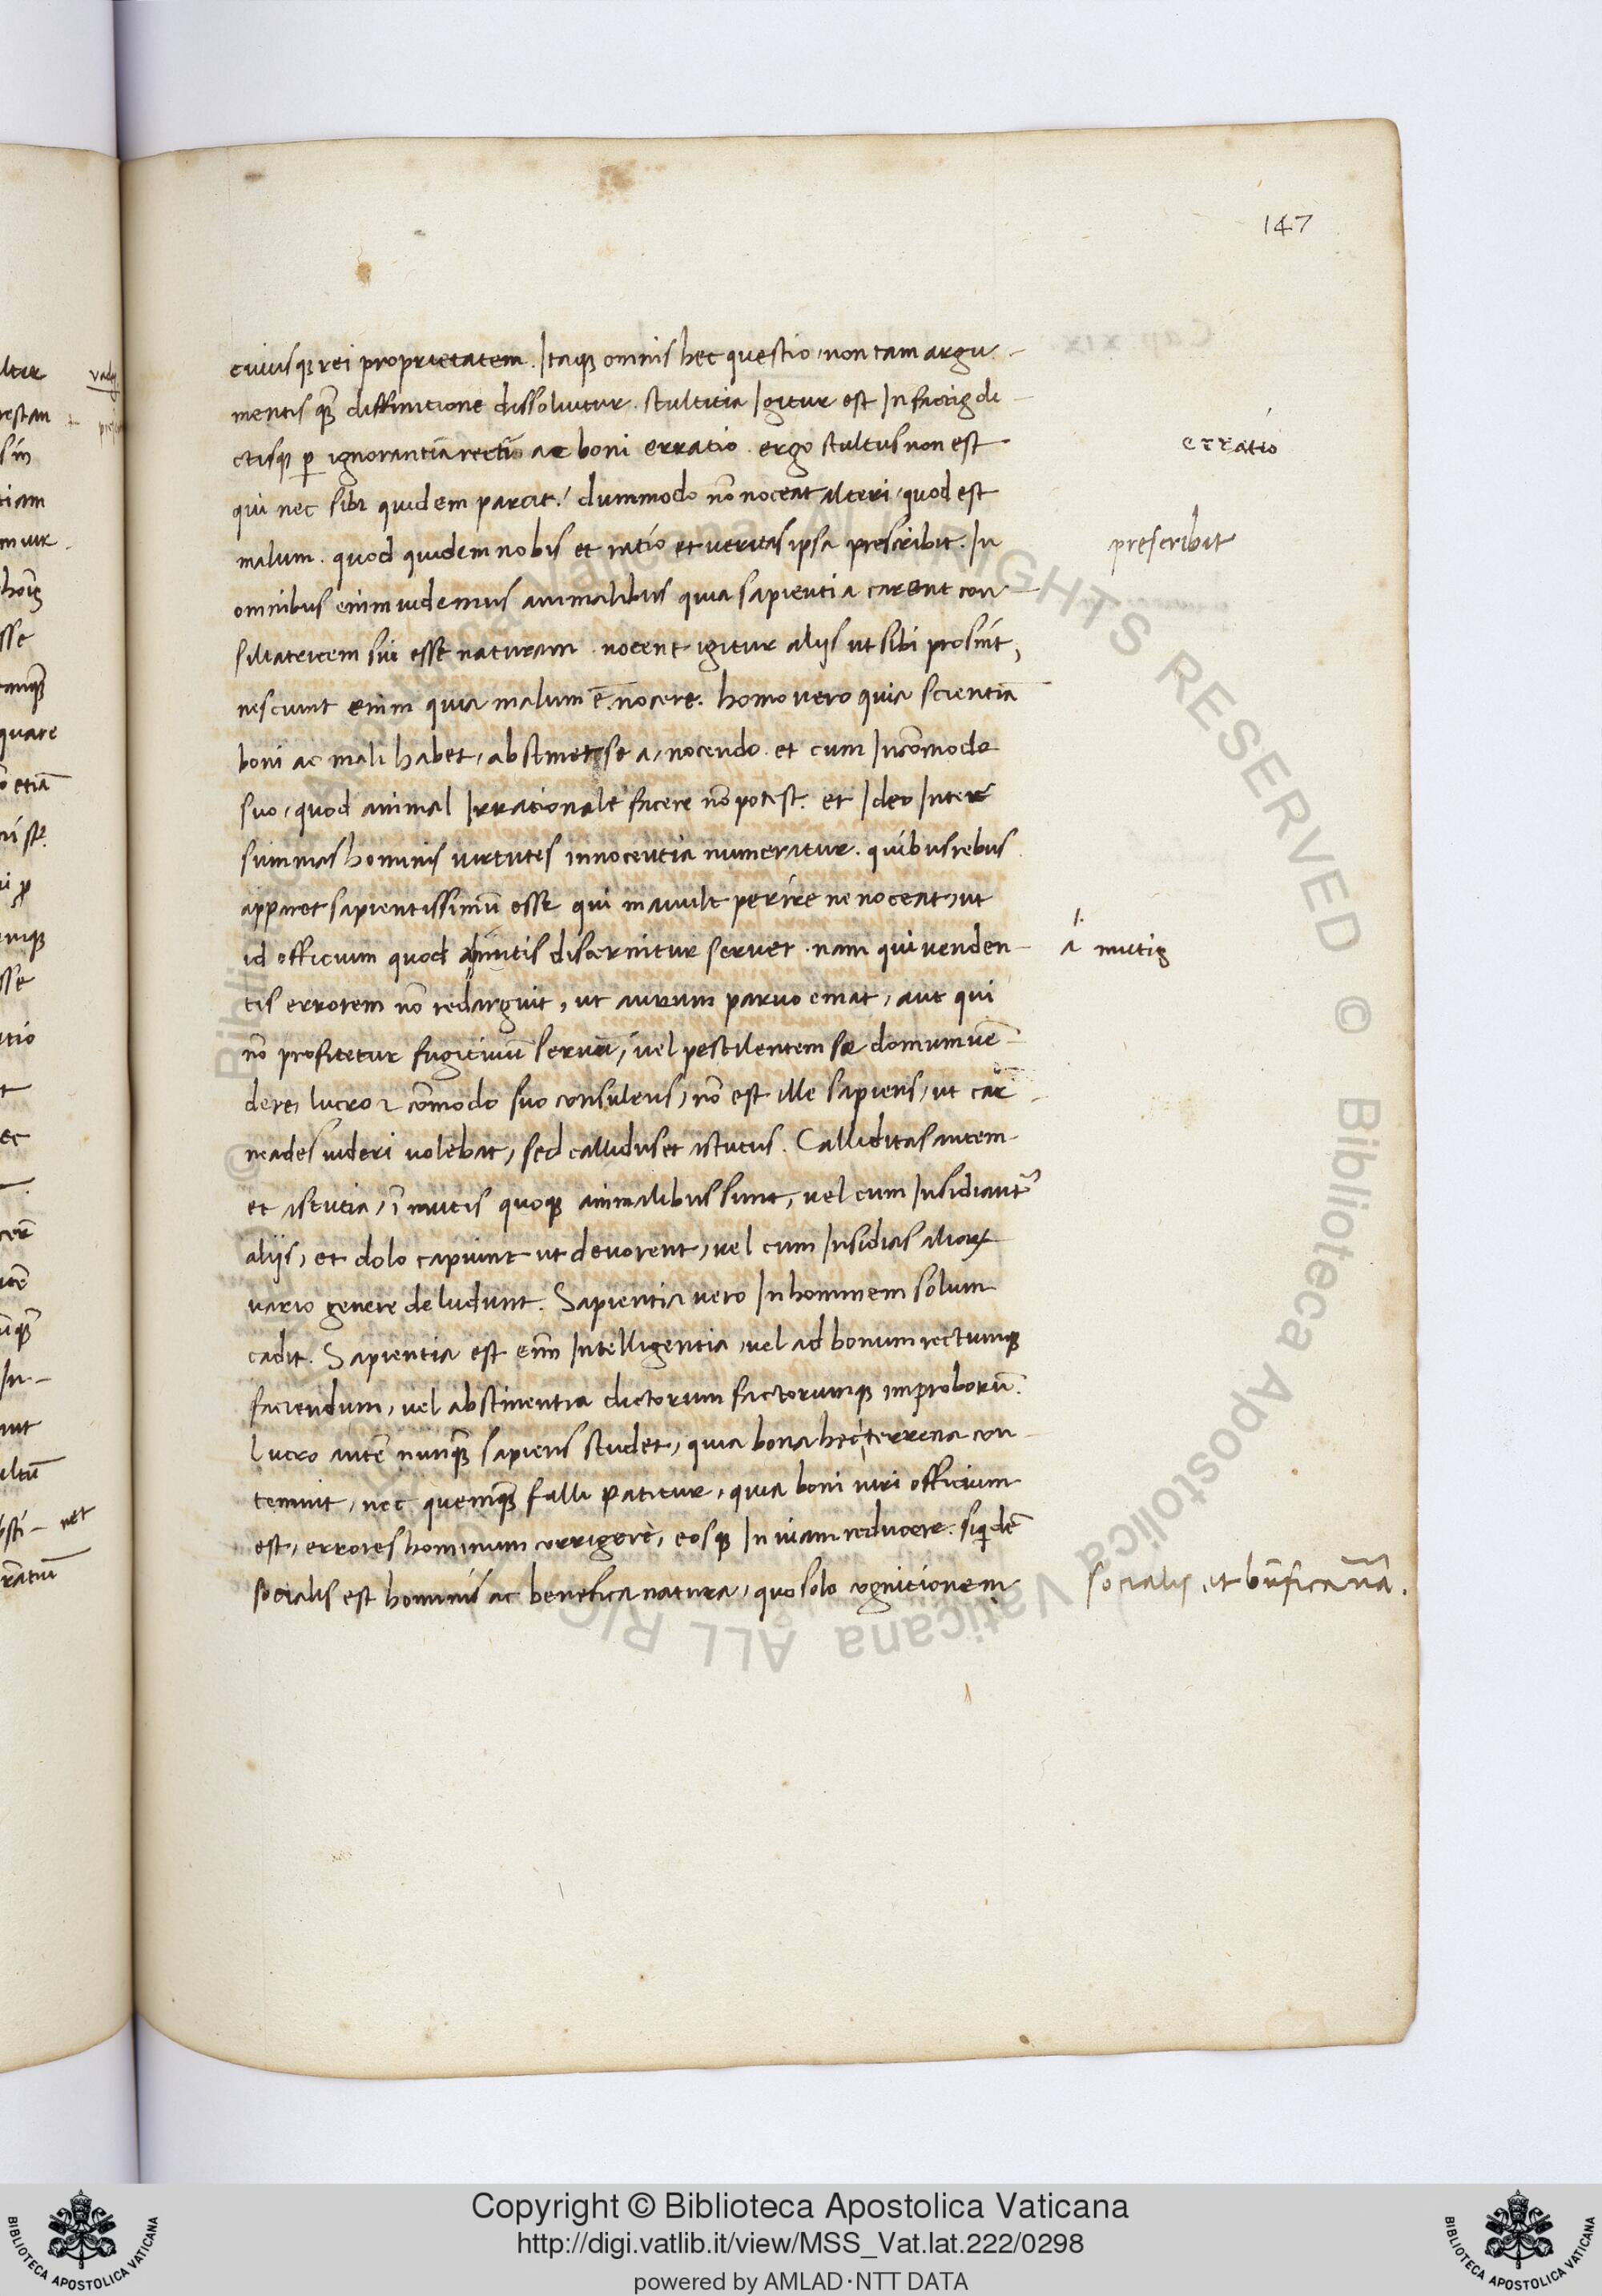 147
cuiusq̄ rei proprietatem. Itaq̄ omnis hec questio, non tam argu-
mentis q̄ȝ diffinitione dissoluitur. Stultitia Igitur est In factis di-
ctisq̄ p ignorantiā recti ac boni erratio. ergo stultus non est
erratio
qui nec sibi quidem parcit, dummodo nō noceat alteri, quod est
malum. quod quidem nobis et ratio et ueritas ipsa prescribit. In
prescribit
omnibus enim uidemus animalibus quia sapientia carent con-
siliatricem sui esse naturam. nocent igitur alijs ut sibi prosint,
nesciunt enim quia malum ē nocere. homo vero quia scientiā
boni ac mali habet, abstinet se a, nocendo. et cum Incōmodo
suo, quod animal Irrationale facere nō potest. et Ideo Inter
summas hominis uirtutes innocentia numeratur. quibus rebus
apparet sapientissimū esse qui mauult perire ne noceat, ut
id officium quod a mutis discernitur seruet. nam qui venden-
a mutis
tis errorem nō redarguit, ut aurum paruo emat, aut qui
nō profitetur fugitiuū seruū, uel pestilentem se domum uē-
dere, lucro ⁊ cōmodo suo consulens, nō est ille sapiens, ut car-
neades uideri uolebat, sed callidus et astutus. Calliditas autem
et astutia, ī mutis quoq̄ animalibus sunt, uel cum Insidiant᷑
alijs, et dolo capiunt ut deuorent, uel cum Insidias alioꝝ
uario genere deludunt. Sapientia vero In hominem solum
cadit. Sapientia est enī Intelligentia, uel ad bonum rectumq̄
faciendum, uel abstinentia dictorum factorumq̄ improborū.
Lucro autē nunq̄ȝ sapiens studet, quia bona hec terrena con-
temnit, nec quemq̄ȝ falli patitur, quia boni uiri officium
est, errores hominum corrigere, eosq̄ In uiam reducere. siqidē
socialis est hominis ac benefica natura, quo solo cognitionem
socialis et bn̄fica nā.
Copyright © Biblioteca Apostolica Vaticana
http://digi.vatlib.it/view/MSS_Vat.lat.222/0298
powered by AMLAD·NTT DATA